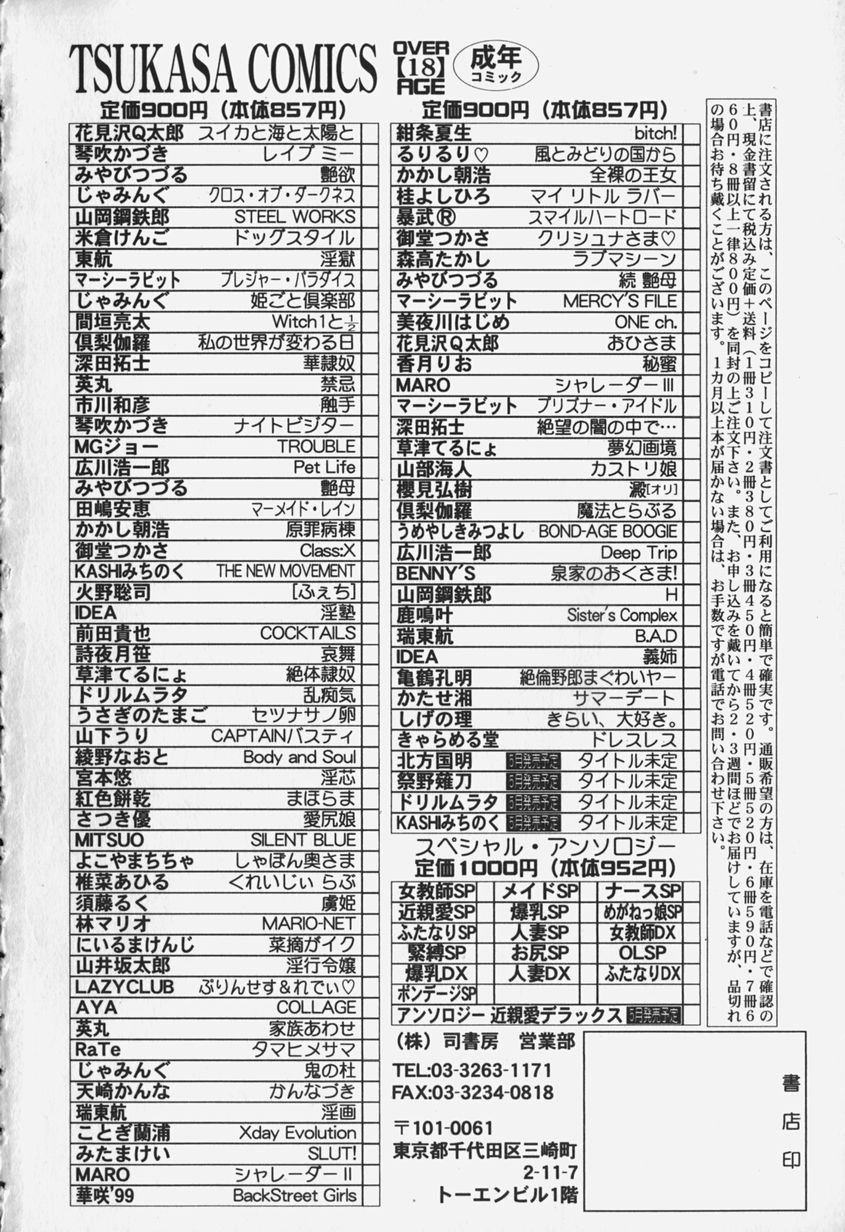 TSUKASA COMICS
OVER
【18】
AGE
成年
コミック
定価900円（本体857円）
花見沢Q太郎 スイカと海と太陽と
琴吹かづき レイプ ミー
みやびつづる 艶欲
じゃみんぐ クロス・オブ・ダークネス
山岡鋼鉄郎 STEEL WORKS
米倉けんご ドッグスタイル
東航 淫獄
マーシーラビット プレジャー・パラダイス
じゃみんぐ 姫ごと倶楽部
間垣亮太 Witch1と½
倶梨伽羅 私の世界が変わる日
深田拓士 華隷奴
英丸 禁忌
市川和彦 触手
琴吹かづき ナイトビジター
MGジョー TROUBLE
広川浩一郎 Pet Life
みやびつづる 艶母
田嶋安恵 マーメイド・レイン
かかし朝浩 原罪病棟
御堂つかさ Class:X
KASHIみちのく THE NEW MOVEMENT
火野聡司 [ふぇち]
IDEA 淫塾
前田貴也 COCKTAILS
詩夜月笹 哀舞
草津てるにょ 絶体隷奴
ドリルムラタ 乱痴気
うさぎのたまご セツナサノ卵
山下うり CAPTAINバスティ
綾野なおと Body and Soul
宮本悠 淫芯
紅色餅乾 まほらま
さつき優 愛尻娘
MITSUO SILENT BLUE
よこやまちちゃ しゃぼん奥さま
椎菜あひる くれいじぃ らぶ
須藤るく 虜姫
林マリオ MARIO-NET
にいるまけんじ 菜摘がイク
山井坂太郎 淫行令嬢
LAZYCLUB ぷりんせす&れでぃ♡
AYA COLLAGE
英丸 家族あわせ
RaTe タマヒメサマ
じゃみんぐ 鬼の杜
天崎かんな かんなづき
瑞東航 淫画
ことぎ蘭浦 Xday Evolution
みたまけい SLUT!
MARO シャレーダーII
華咲'99 BackStreet Girls
定価900円（本体857円）
紺条夏生 bitch!
るりるり♡ 風とみどりの国から
かかし朝浩 全裸の王女
桂よしひろ マイ リトル ラバー
暴武® スマイルハートロード
御堂つかさ クリシュナさま♡
森高たかし ラブマシーン
みやびつづる 続 艶母
マーシーラビット MERCY'S FILE
美夜川はじめ ONE ch.
花見沢Q太郎 おひさま
香月りお 秘蜜
MARO シャレーダーIII
マーシーラビット プリズナー・アイドル
深田拓士 絶望の闇の中で…
草津てるにょ 夢幻画境
山部海人 カストリ娘
櫻見弘樹 澱[オリ]
倶梨伽羅 魔法とらぶる
うめやしきみつよし BOND-AGE BOOGIE
広川浩一郎 Deep Trip
BENNY'S 泉家のおくさま!
山岡鋼鉄郎 H
鹿鳴叶 Sister's Complex
瑞東航 B.A.D
IDEA 義姉
亀鶴孔明 絶倫野郎まぐわいヤー
かたせ湘 サマーデート
しげの理 きらい、大好き。
きゃらめる堂 ドレスレス
北方国明 タイトル未定
祭野薙刀 タイトル未定
ドリルムラタ タイトル未定
KASHIみちのく タイトル未定
スペシャル・アンソロジー
定価1000円（本体952円）
女教師SP メイドSP ナースSP
近親愛SP 爆乳SP めがねっ娘SP
ふたなりSP 人妻SP 女教師DX
緊縛SP お尻SP OLSP
爆乳DX 人妻DX ふたなりDX
ボンデージSP
アンソロジー 近親愛デラックス
書店に注文される方は、このページをコピーして注文書としてご利用になると簡単で確実です。通販希望の方は、在庫を電話などで確認の
上、現金書留にて税込み定価＋送料（1冊310円・2冊380円・3冊450円・4冊520円・5冊520円・6冊590円・7冊6
60円・8冊以上一律800円）を同封の上ご注文下さい。また、お申し込みを戴いてから2・3週間ほどでお届けしていますが、品切れ
の場合お待ち戴くことがございます。1カ月以上本が届かない場合は、お手数ですが電話でお問い合わせ下さい。
（株）司書房 営業部
TEL:03-3263-1171
FAX:03-3234-0818
〒101-0061
東京都千代田区三崎町
2-11-7
トーエンビル1階
書店印